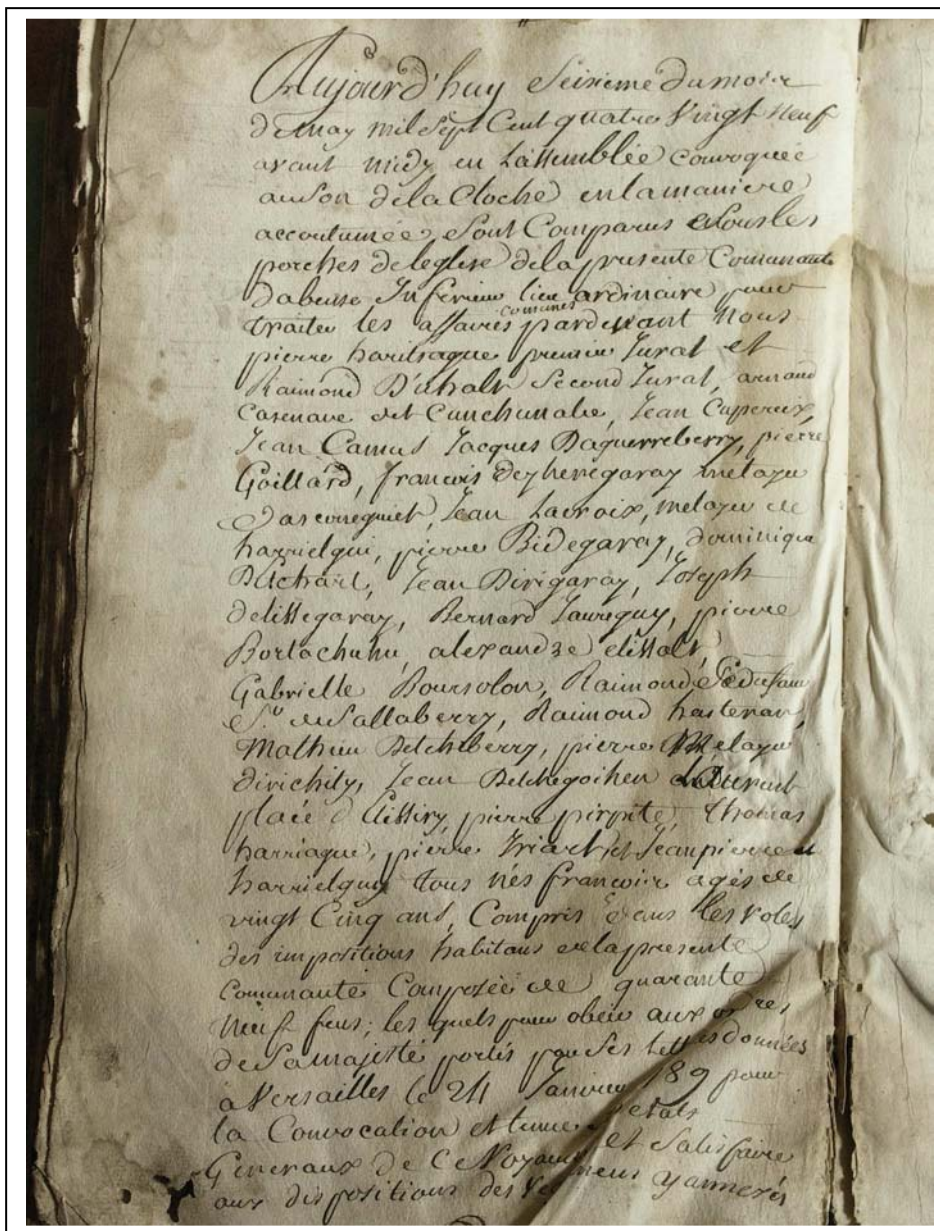 Aujourd'huy Seisieme du mois
de may mil sept Cent quatre Vingt Neuf
avant midy en L'assemblée convoquée
au son de la Cloche en la maniere
accoutumée, sont Comparus sous les
porches de leglise de la presente Comunauté
Inferieur lieu ordinaire pour
traiter les affaires comunes pardevant Nous
pierre haritsague premier Jurat et
Raimond D'uhalt Second Jurat, arnaud
Casenave dit Cunchunabe, Jean Capereix,
Jean Camus Jacques Daguerreberry, pierre
Goillard, francois metayer
Jean Lacroix, metayer de
harrielgui, pierre Bidegaray, dominique
Detchart, Jean Dirigaray, Joseph
delissegaray, Bernard Jaureguy, pierre
Bortachuhu, alexandre elissalt,
Gabrielle Boursolon, Raimond
de Sallaberry, Raimond hasteran,
Mathieu Detcheberry, pierre Metayer
dirichily, Jean Detchegoihen
place d' pierre pirpite, Thomas
harriague, pierre Iriart et Jean pierre
harrielguy tous nés francois agés de
vingt Cinq ans, Compris dans les roles
des impositions habitans de la presente
Comunauté Composée de quarante
Neuf feus; les quels pour obeir aux ordres
de Sa majesté portés par ses données
à Versailles le 24 Janvier 189 pour
la Convocation et tenue etats
Generaux de Ce Royaume et Satisfaire
aux dispositions des y annexés